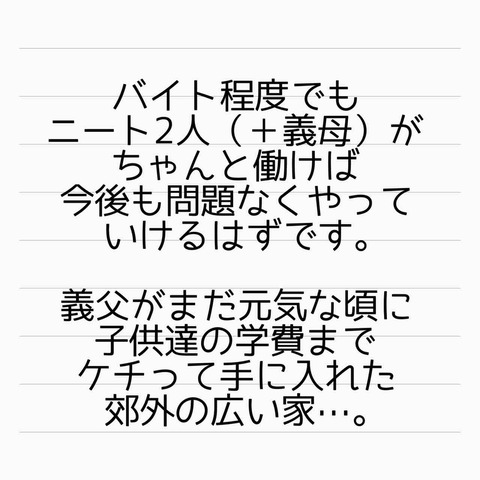 バイト程度でも
ニート2人（＋義母）が
ちゃんと働けば
今後も問題なくやって
いけるはずです。
義父がまだ元気な頃に
子供達の学費まで
ケチって手に入れた
郊外の広い家…。